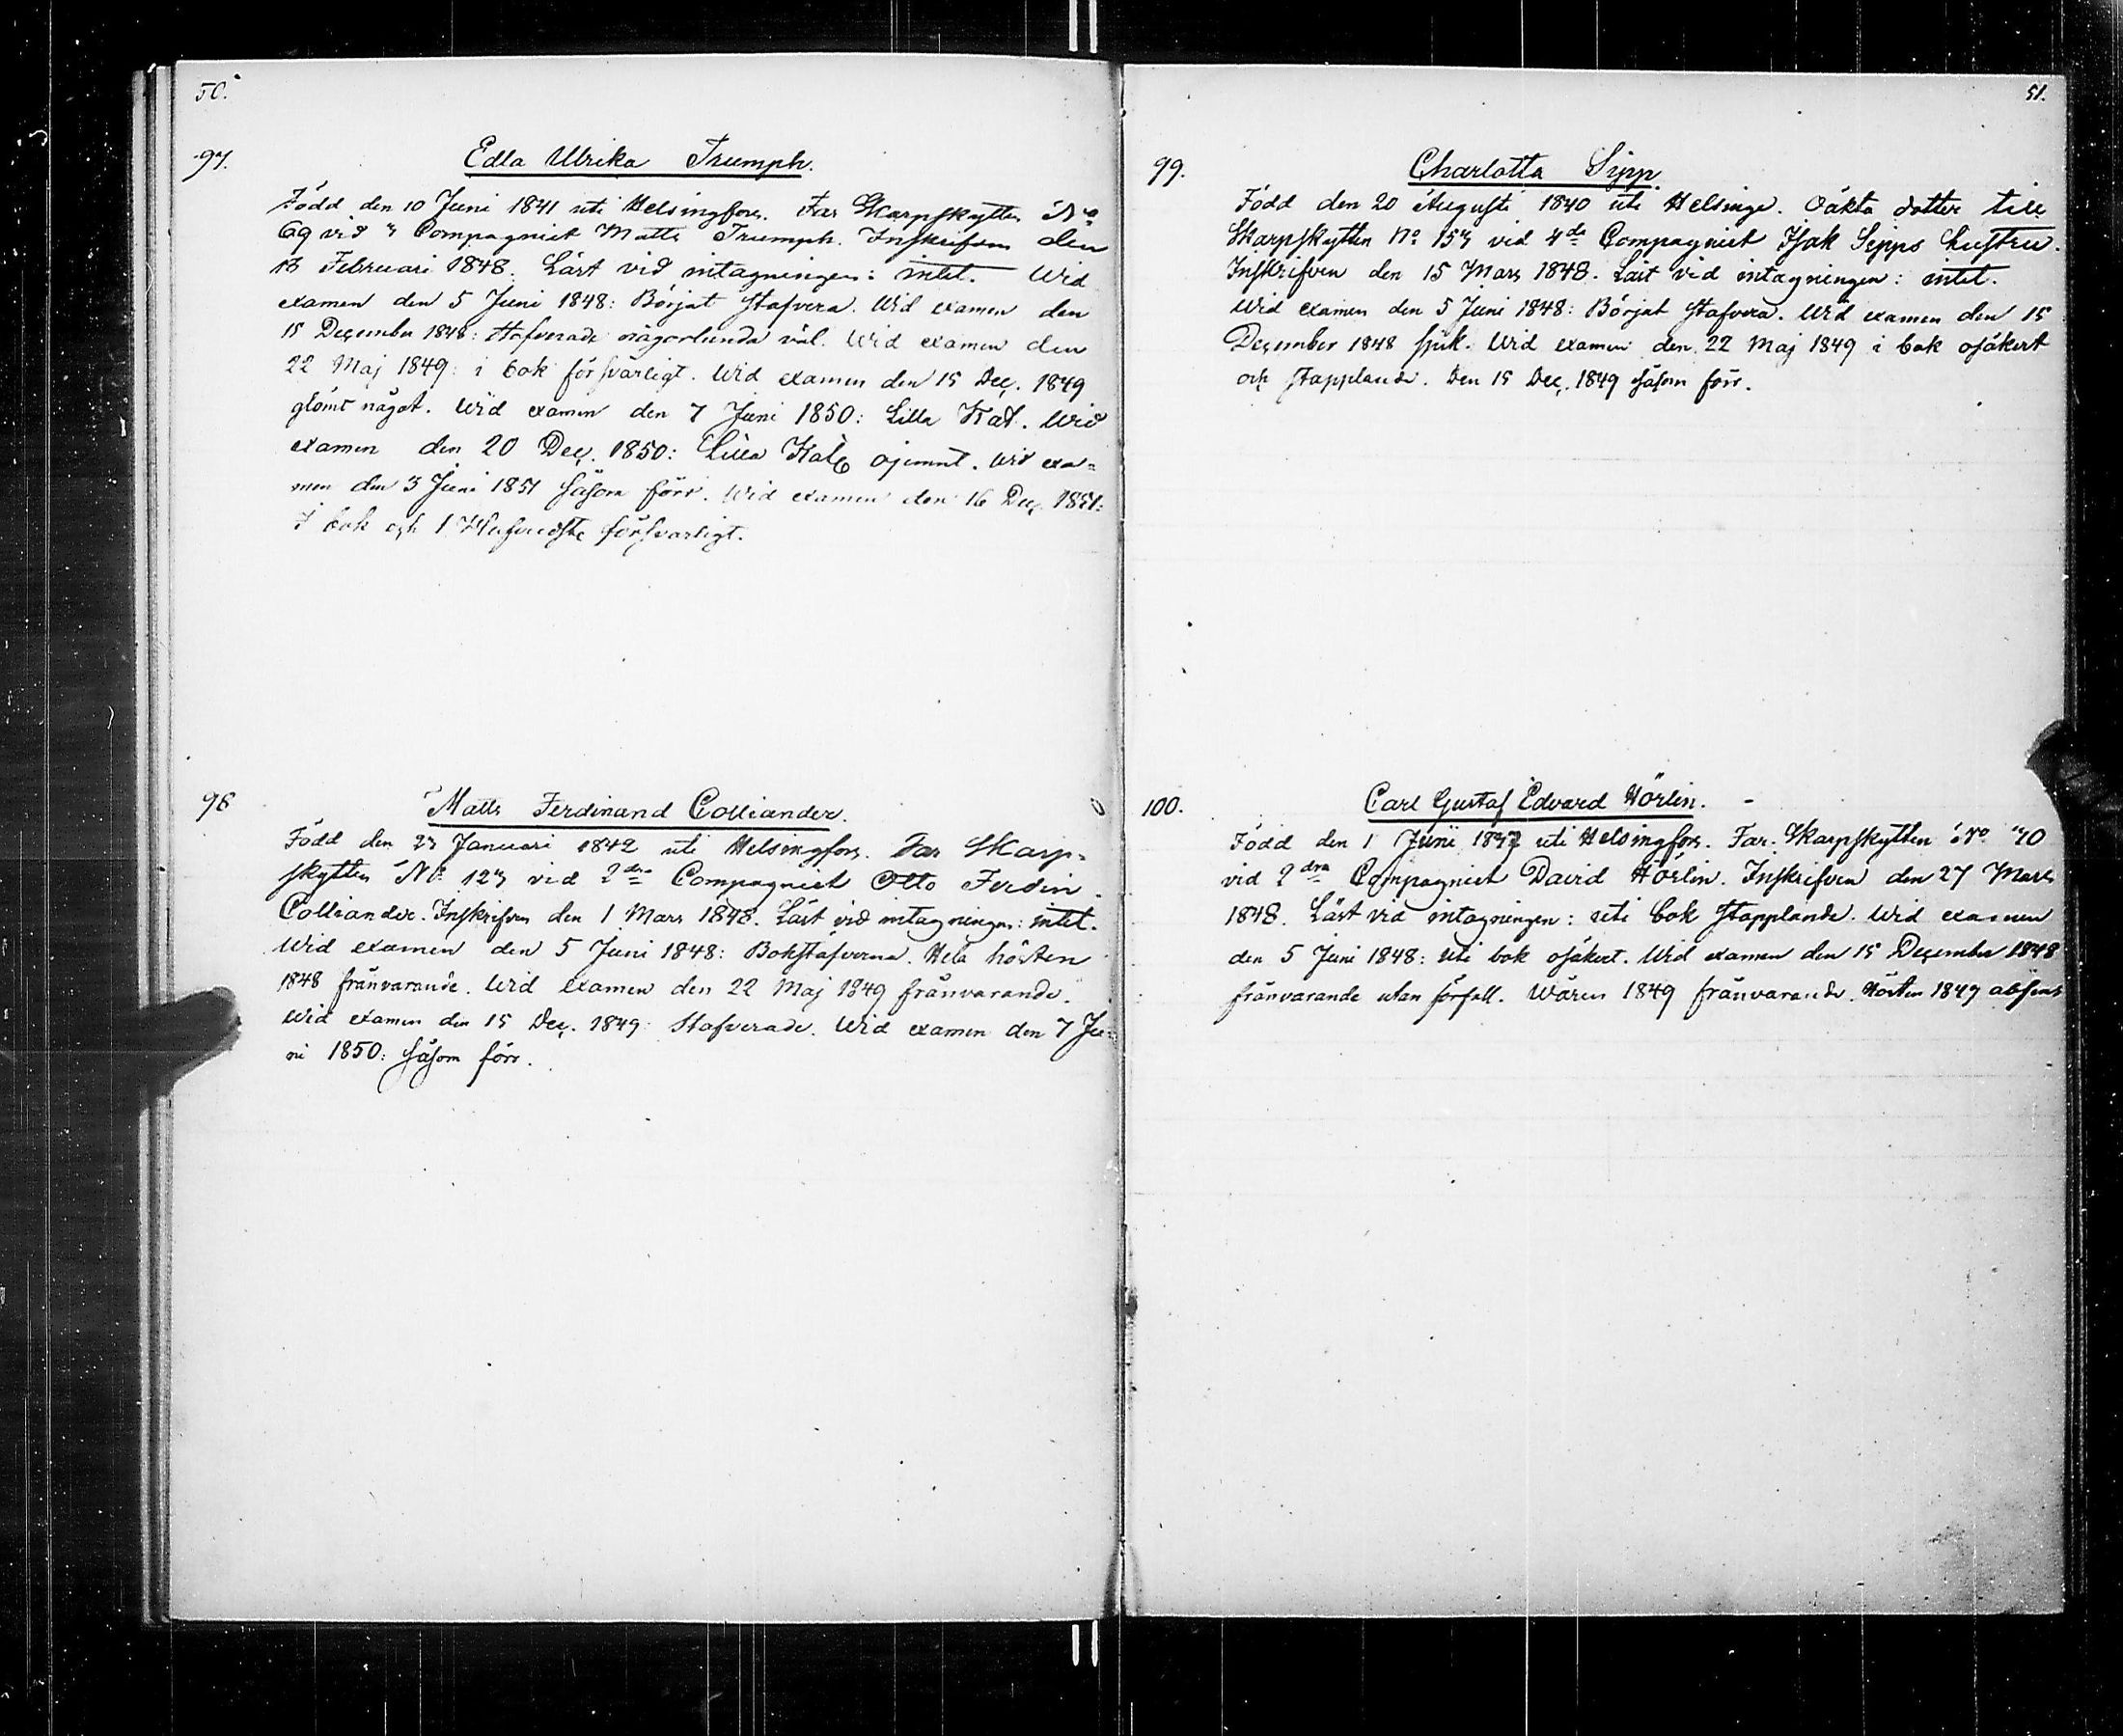 50.
97.
Edla Ulrika Triumph.
Född den 10 Juni 1841 uti Helsingfors. Far Skarpskytten No
69 vid Compagniet Matts Triumph. Inskrifven den
Februari 1848. Läst vid intagningen: intet. Wid
examen den 5 Juni 1848: Börjat stafvera. Wid examen den
15 December 1848: Stafverade någorlunda väl. Wid examen den
22 Maj 1849: i bok försvarligt. Wid examen den 15 Dec. 1849
glömt något. Wid examen den 7 Juni 1850: Lilla Kat. Wid
examen den 20 Dec. 1850: Lilla Kat. ojemnt. Wid exa=
men den 3 Juni 1851 såsom förr. Wid examen den 16 Dec. 1851:
I bok och 1 Hufvudst. försvarligt.
98
Matts Ferdinand Colliander.
Född den 23 Januari 1842 uti Helsingfors. Far Skarp=
skytten No 123 vid 2dra Compagniet Otto Ferdin.
Colliander. Inskrifven den 1 Mars 1848. Läst vid intagningen: intet.
Wid examen den 5 Juni 1848: Bokstäfverna. Hela hösten
1848 frånvarande. Wid examen den 22 Maj 1849 frånvarande.
Wid examen den 15 Dec. 1849: Stafverade. Wid examen den 7 Ju=
ni 1850: såsom förr.
51.
99.
Charlotta Sipp.
Född den 20 Augusti 1840 uti Helsinge. Oäkta dotter till
Skarpskytten No 153 vid 4de Compagniet Isak Sipps hustru.
Inskrifven den 15 Mars 1848. Läst vid intagningen: intet.
Wid examen den 5 Juni 1848: Börjat stafvera. Wid examen den 15
December 1848 sjuk. Wid examen den 22 Maj 1849 i bok osäkert
och stapplande. Den 15 Dec. 1849 såsom förr.
100.
Carl Gustaf Edvard Hörlin.
Född den 1 Juni 1837 uti Helsingfors. Far: Skarpskytten No 70
vid 2dra Compagniet David Hörlin. Inskrifven den 27 Mars
1848. Läst vid intagningen: uti bok stapplande. Wid examen
den 5 Juni 1848: uti bok osäkert. Wid examen den 15 December 1848
frånvarande utan förfall. Wåren 1849 frånvarande. Hösten 1849 absens